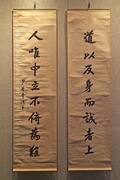 道以反身而誠者上
人唯中立不倚為難